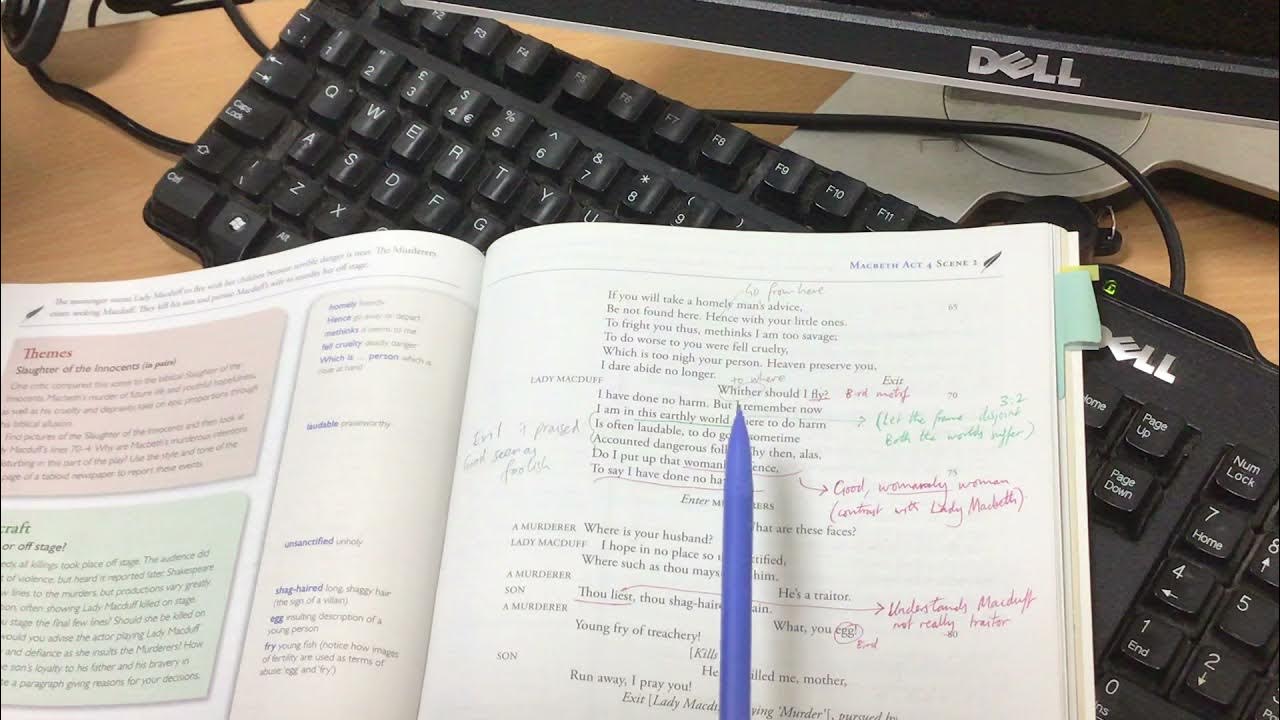 DELL
F2
F3
F4
F5
F6
F7
F8
F9
F10
F11
Caps Lock
Q W E R T Y U
A S D F G
Z X
Ctrl
Alt
DELL
Page Up
Page Down
Num Lock
7 Home
8
4
5
1 End
2
0
The messenger warns Lady Macduff to fly with her children because terrible danger is near. The Murderers
enter, seeking Macduff. They kill his son and pursue Macduff's wife to murder her off stage.
Themes
Slaughter of the Innocents (in pairs)
One critic compared this scene to the biblical Slaughter of the
Innocents. Macbeth's murder of future life and youthful hopefulness,
as well as his cruelty and depravity, take on epic proportions through
this biblical allusion.
Find pictures of the Slaughter of the Innocents and then look at
Macduff's lines 70–4. Why are Macbeth's murderous intentions
disturbing in this part of the play? Use the style and tone of the
page of a tabloid newspaper to report these events.
craft
or off stage?
all killings took place off stage. The audience did
of violence, but heard it reported later. Shakespeare
lines to the murders, but productions vary greatly,
often showing Lady Macduff killed on stage.
you stage the final few lines? Should she be killed on
would you advise the actor playing Lady Macduff
and defiance as she insults the Murderers? How
son's loyalty to his father and his bravery in
a paragraph giving reasons for your decisions.
homely friendly
Hence go away or depart
methinks it seems to me
fell cruelty deadly danger
Which is ... person which is
close at hand
laudable praiseworthy
unsanctified unholy
shag-haired long, shaggy hair
(the sign of a villain)
egg insulting description of a
young person
fry young fish (notice how images
of fertility are used as terms of
abuse: 'egg' and 'fry')
MACBETH ACT 4 SCENE 2
Go from here
If you will take a homely man's advice, 65
Be not found here. Hence with your little ones.
To fright you thus, methinks I am too savage;
To do worse to you were fell cruelty,
Which is too nigh your person. Heaven preserve you,
I dare abide no longer. Exit
to where
LADY MACDUFF Whither should I fly? 70 Bird motif
I have done no harm. But I remember now
I am in this earthly world where to do harm
Is often laudable, to do sometime
Accounted dangerous Why then, alas,
Do I put up that womanly
To say I have done no
3:2
(Let the frame disjoint
Both the worlds suffer)
Evil is praised
Good seen as
foolish
75
Good, womanly woman
(contrast with Lady Macbeth)
Enter MURDERERS
A MURDERER Where is your husband? What are these faces?
LADY MACDUFF I hope in no place so
Where such as thou him.
A MURDERER He's a traitor.
SON Thou liest, thou shag-haired
A MURDERER What, you egg! 80
Bird
Young fry of treachery!
Understands Macduff
not really traitor
[Kills
SON He killed me, mother,
Run away, I pray you!
Exit [Lady 'Murder'], pursued by